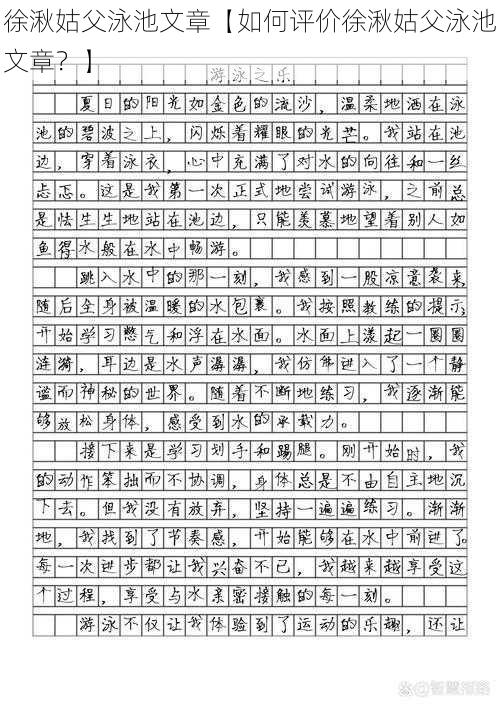 徐湫姑父泳池文章【如何评价徐湫姑父泳池
文章？】
游泳之乐
夏日的阳光如金色的流沙，温柔地洒在泳
池的碧波之上，闪烁着耀眼的光芒。我站在池
边，穿着泳衣，心中充满了对水的向往和一丝
忐忑。这是我第一次正式地尝试游泳，之前总
是怯生生地站在池边，只能羡慕地望着别人如
鱼得水般在水中畅游。
跳入水中的那一刻，我感到一股凉意袭来，
随后全身被温暖的水包裹。我按照教练的提示，
开始学习憋气和浮在水面。水面上漾起一圈圈
涟漪，耳边是水声潺潺，我仿佛进入了一个静
谧而神秘的世界。随着不断地练习，我逐渐能
够放松身体，感受到水的承载力。
接下来是学习划手和踢腿。刚开始时，我
的动作笨拙而不协调，身体总是不由自主地沉
下去。但我没有放弃，坚持一遍遍练习。渐渐
地，我找到了节奏感，开始能够在水中前进了。
每一次进步都让我兴奋不已，我越来越享受这
个过程，享受与水亲密接触的每一刻。
游泳不仅让我体验到了运动的乐趣，还让